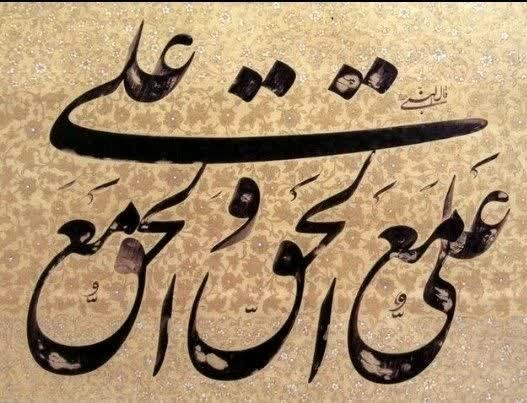 قال النبی
علی مع الحق و الحق مع علی